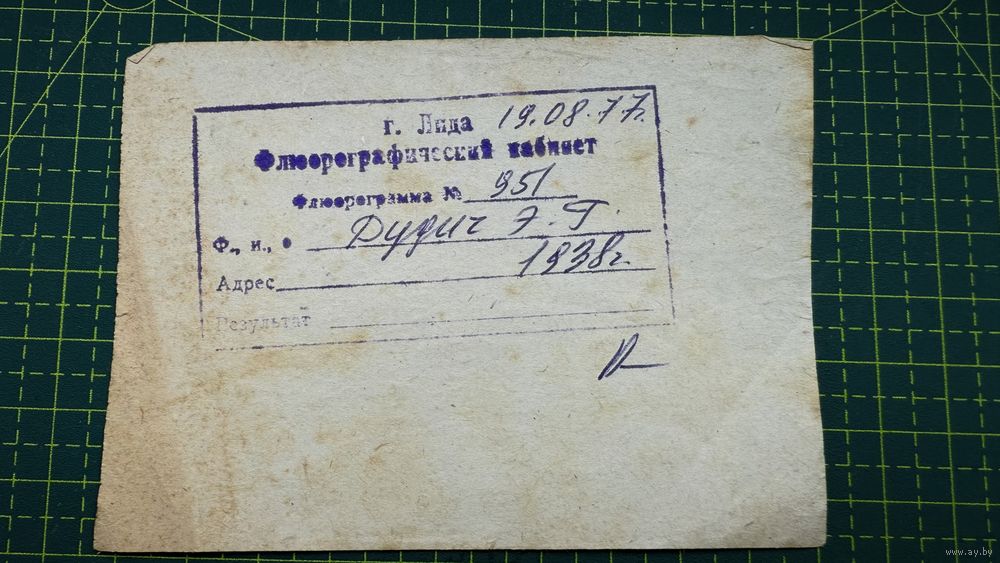 г. Лида 19.08.77г.
Флюорографический кабинет
Флюорограмма № 951
Ф., и., о Дудич Э.Г.
1938г.
Адрес
Результат
www.ay.by